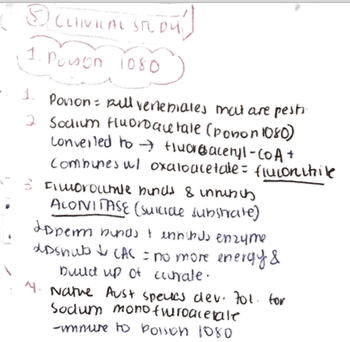 ⑤ CLINICAL STUDY
1. Poison 1080
1. Poison = kill vertebrates that are pests
2. Sodium fluoroacetate (poison 1080)
converted to → fluoroacetyl-CoA +
combines w/ oxaloacetate = fluorocitrate
3. Fluorocitrate binds & inhibits
ACONITASE (suicide substrate)
perm binds + inhibits enzyme
↓ CAC = no more energy &
build up of citrate.
4. Native Aust species dev. tol. for
sodium monofluoroacetate
-immune to poison 1080